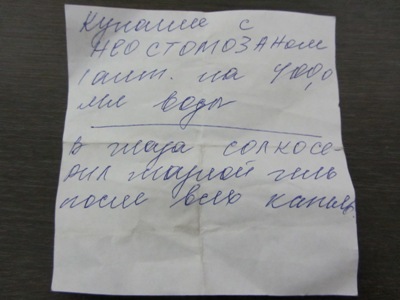 Купание с
неостомозаном
1 амп. на 400,0
мл воды
в глаза солкосе-
рил глазной гель
после всех капель.